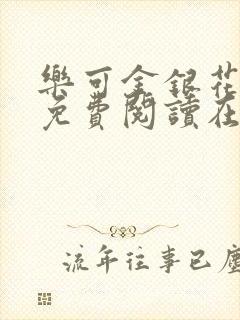 樂可金銀花
免費閱讀在
流年往事已塵